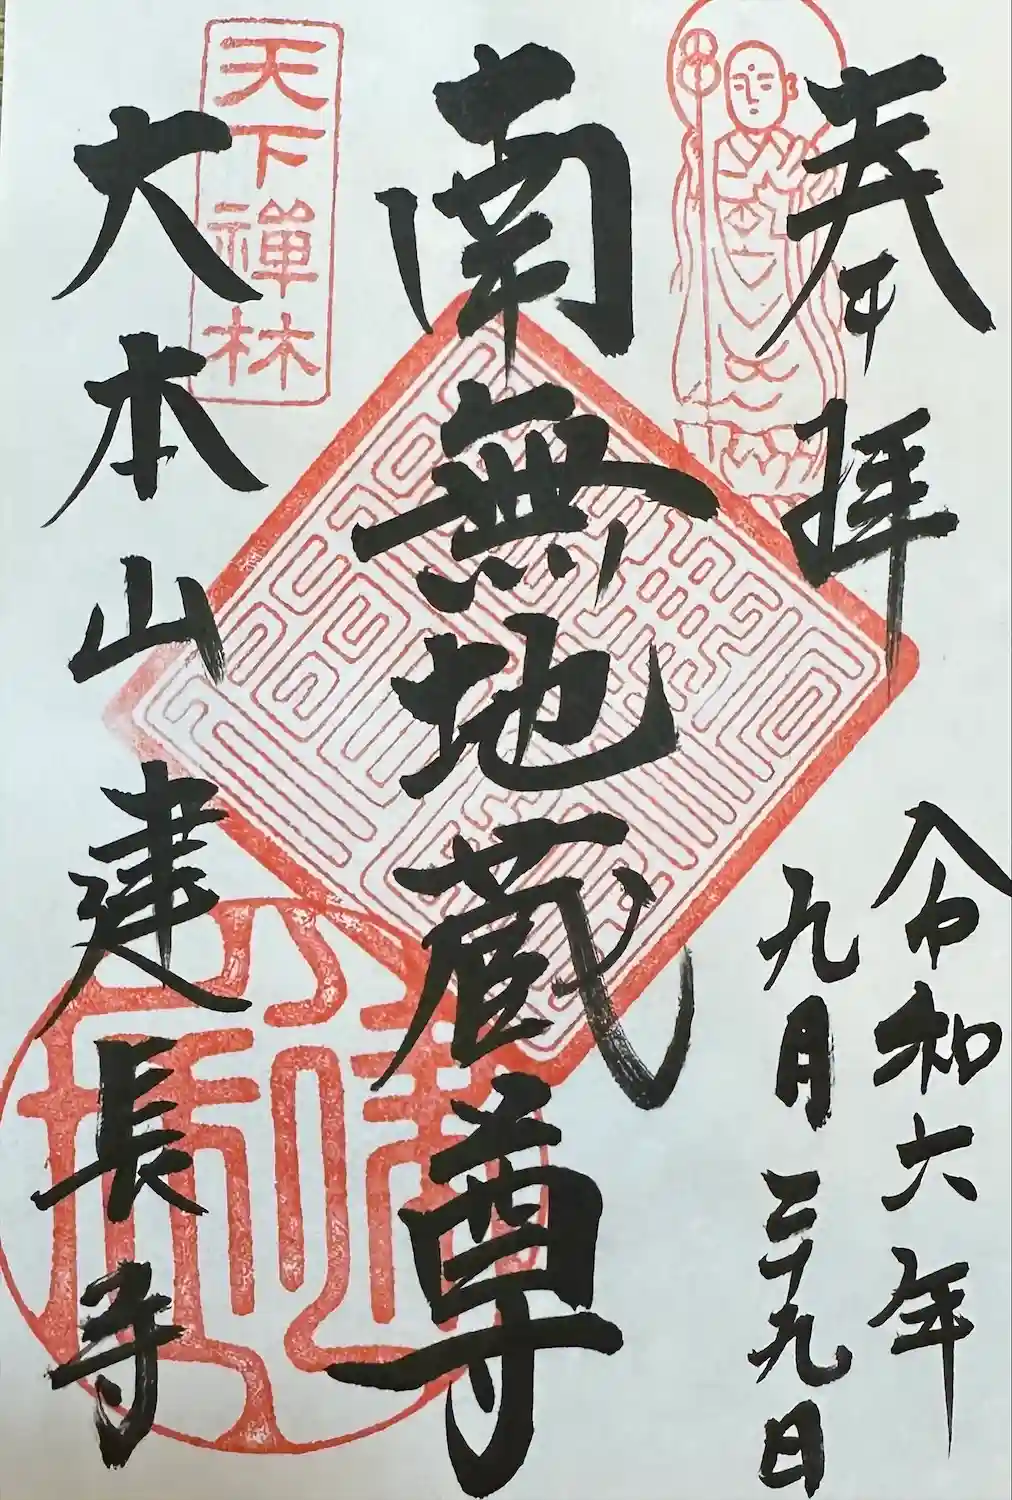 奉拝
令和六年
九月二十九日
南無地蔵尊
天下禅林
大本山建長寺